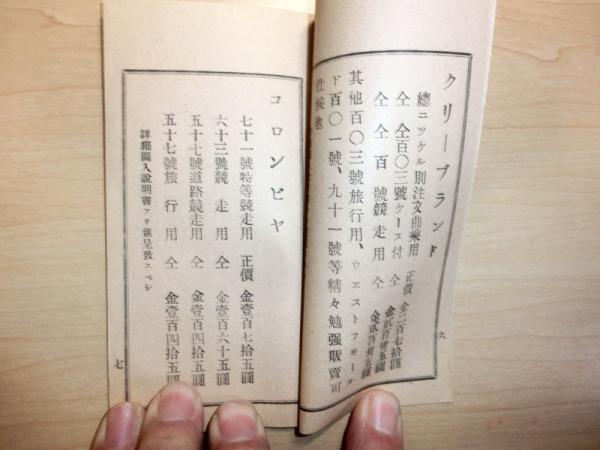 クリーブランド
總ニッケル別注文曲乘用 正價 金二百七拾圓
仝 仝百〇三號ケース付 仝 金貳百卅五圓
仝 仝百號競走用 仝 金貳百卅五圓
其他百〇三號旅行用、ウエストフヰール
ド百〇一號、九十一號等精々勉强販賣可
仕候也
六
コロンビヤ
七十一號特等競走用 正價 金壹百七拾五圓
六十三號競走用 仝 金壹百六十五圓
五十七號道路競走用 仝 金壹百四拾五圓
五十七號旅行用 仝 金壹百四拾五圓
詳細圖入說明書アリ進呈致スベシ
七